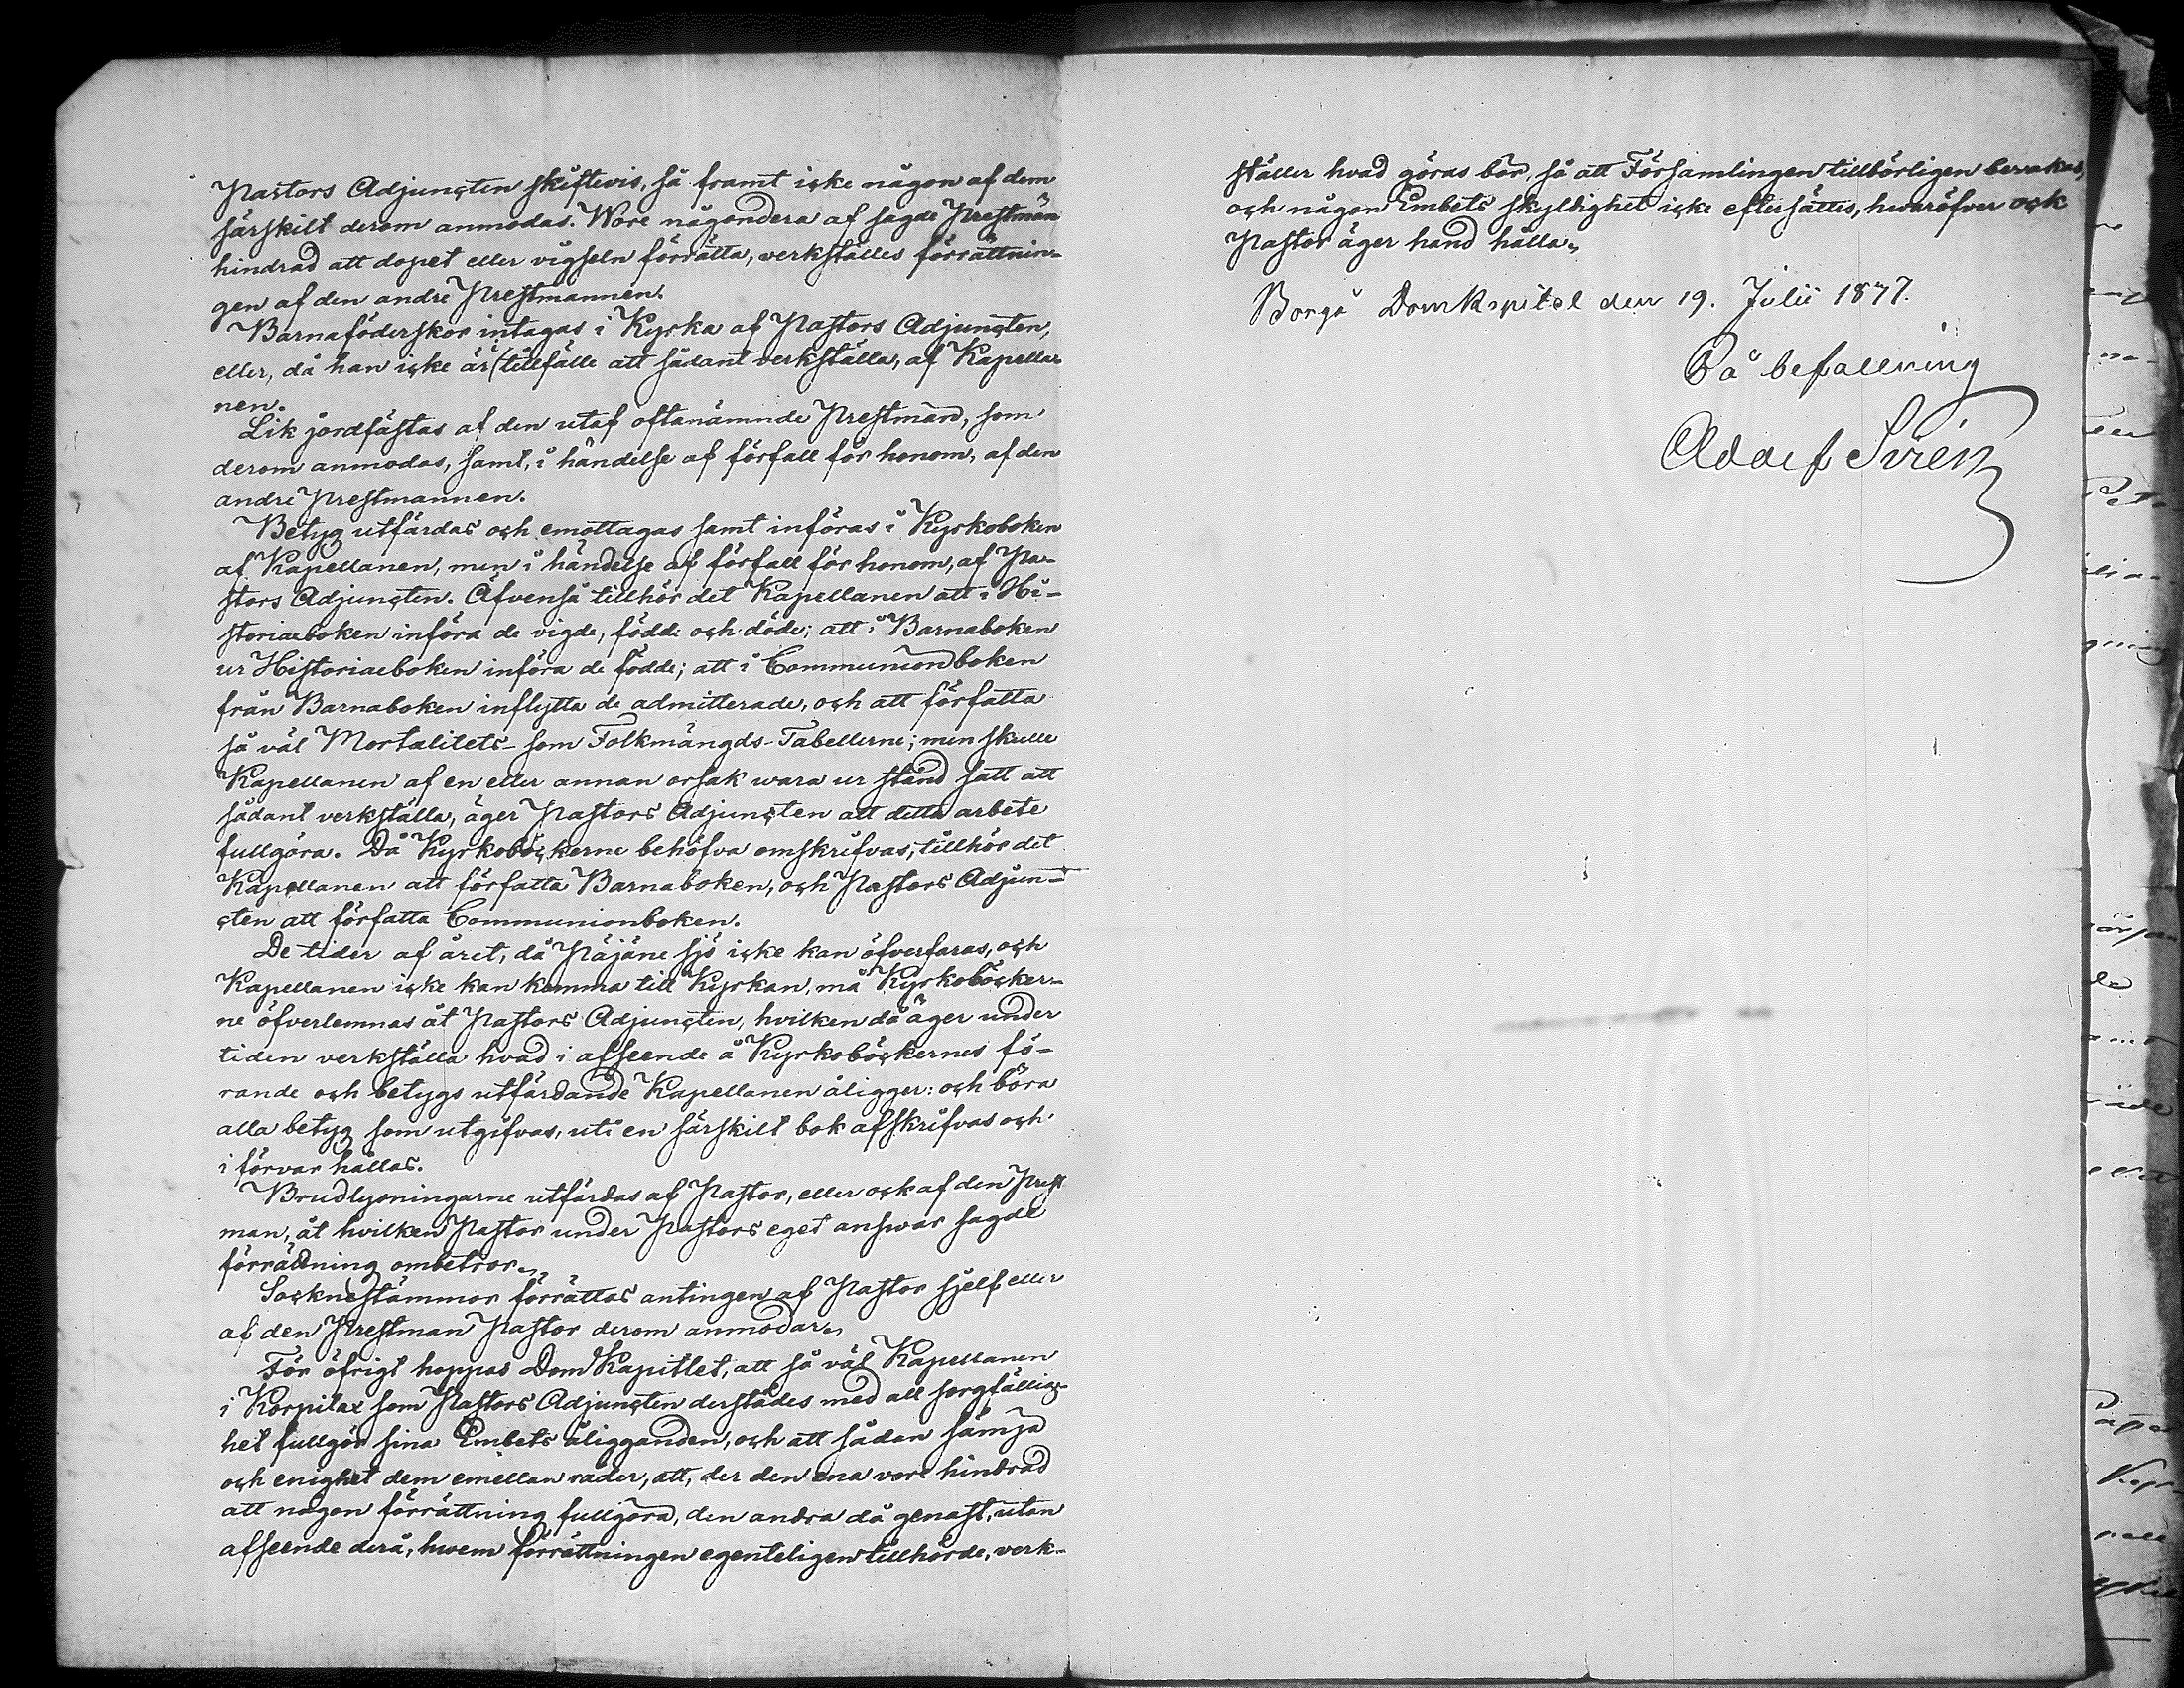 Pastors Adjuncten skiftevis, så framt icke någon af dem
särskilt derom anmodas. Wore någondera af sagde Prestmän
hindrad att dopet eller vigseln förrätta, verkställes förrättnin-
gen af den andre Prestmannen.
Barnaföderskor intagas i Kyrka af Pastors Adjuncten,
eller, då han icke är i tillfälle att sådant verkställa, af Kapella-
nen.
Lik jordfästas af den utaf oftanämnde Prestmän, som
derom anmodas, samt, i händelse af förfall för honom, af den
andre Prestmannen.
Betyg utfärdas och emottagas samt införas i Kyrkoboken
af Kapellanen, men i händelse af förfall för honom, af Pa-
stors Adjuncten. Äfvenså tillhör det Kapellanen att i Hi-
storiaeboken införa de vigde, födde och döde; att i Barnaboken
ur Historiaeboken införa de födde; att i Communionboken
från Barnaboken inflytta de admitterade, och att författa
så väl Mortalitets- som Folkmängds-Tabellerne; men skulle
Kapellanen af en eller annan orsak wara ur stånd satt att
sådant verkställa, äger Pastors Adjuncten att detta arbete
fullgöra. Då Kyrkoböckerne behöfva omskrifvas, tillhör det
Kapellanen att författa Barnaboken, och Pastors Adjun-
cten att författa Communionboken.
De tider af året, då Päjäne sjö icke kan öfverfaras, och
Kapellanen icke kan komma till Kyrkan, må Kyrkoböcker-
ne öfverlemnas åt Pastors Adjuncten, hvilken då äger under
tiden verkställa hvad i afseende å Kyrkoböckernes fö-
rande och betygs utfärdande Kapellanen åligger: och böra
alla betyg som utgifvas, uti en särskilt bok afskrifvas och
i förvar hållas.
Brudlysningarne utfärdas af Pastor, eller ock af den Prest
man, åt hvilken Pastor under Pastors eget answar sagde
förrättning ombetror.
Socknestämmor förrättas antingen af Pastor sjelf eller
af den Prestman Pastor derom anmodar.
För öfrigt hoppas DomKapitlet, att så väl Kapellanen
i Korpilax som Pastors Adjuncten derstädes med all sorgfällig-
het fullgör sina Embets åligganden, och att sådan sämja
och enighet dem emellan råder, att, der den ena vore hindrad
att någon förrättning fullgöra, den andra då genast, utan
afseende derå, hwem förrättningen egenteligen tillhörde, verk-
ställer hvad göras bör, så att Församlingen tillbörligen bevakas,
och någon Embets skyldighet icke eftersättes, hvaröfver ock
Pastor äger hand hålla.
Borgå Domkapitel den 19. Julii 1877.
På befallning
Adolf Sirén